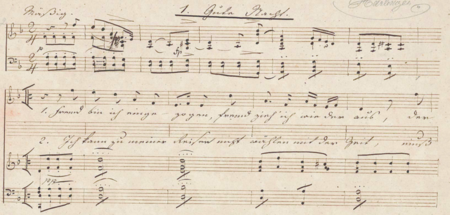 Mäßig. 1. Gute Nacht.
1. Fremd bin ich einge zogen, fremd zieh ich wieder aus, der
2. Ich kann zu meiner Reisen nicht wählen mit der Zeit, muß